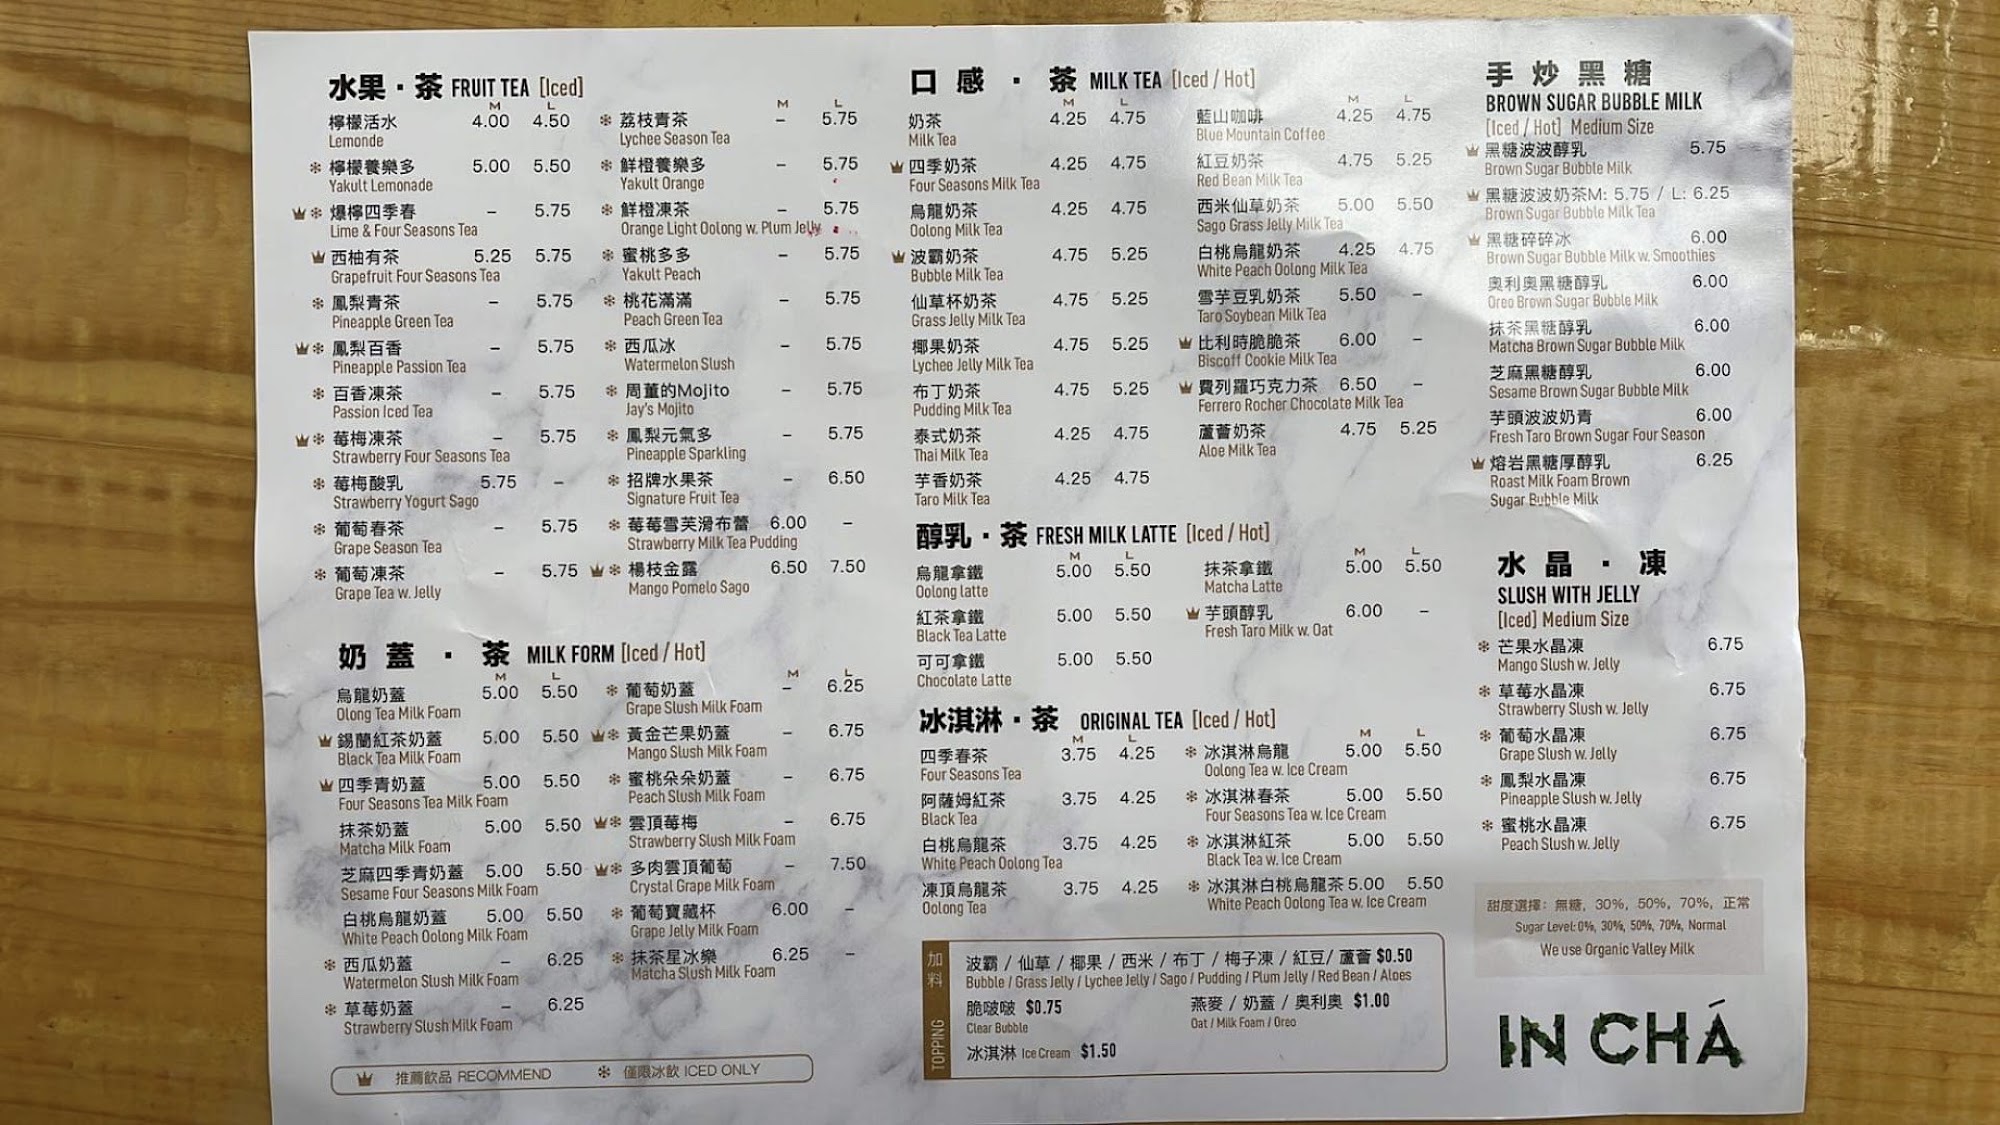 水果·茶 FRUIT TEA [Iced]
M L
檸檬活水 4.00 4.50
Lemonde
檸檬養樂多 5.00 5.50
Yakult Lemonade
爆檸四季春 – 5.75
Lime & Four Seasons Tea
西柚有茶 5.25 5.75
Grapefruit Four Seasons Tea
鳳梨青茶 – 5.75
Pineapple Green Tea
鳳梨百香 – 5.75
Pineapple Passion Tea
百香凍茶 – 5.75
Passion Iced Tea
莓梅凍茶 – 5.75
Strawberry Four Seasons Tea
莓梅酸乳 5.75 –
Strawberry Yogurt Sago
葡萄春茶 – 5.75
Grape Season Tea
葡萄凍茶 – 5.75
Grape Tea w. Jelly
M L
荔枝青茶 – 5.75
Lychee Season Tea
鮮橙養樂多 – 5.75
Yakult Orange
鮮橙凍茶 – 5.75
Orange Light Oolong w. Plum Jelly
蜜桃多多 – 5.75
Yakult Peach
桃花滿滿 – 5.75
Peach Green Tea
西瓜冰 – 5.75
Watermelon Slush
周董的Mojito – 5.75
Jay's Mojito
鳳梨元氣多 – 5.75
Pineapple Sparkling
招牌水果茶 – 6.50
Signature Fruit Tea
莓莓雪芙滑布蕾 6.00 –
Strawberry Milk Tea Pudding
楊枝金露 6.50 7.50
Mango Pomelo Sago
奶蓋·茶 MILK FORM [Iced / Hot]
M L
烏龍奶蓋 5.00 5.50
Olong Tea Milk Foam
錫蘭紅茶奶蓋 5.00 5.50
Black Tea Milk Foam
四季青奶蓋 5.00 5.50
Four Seasons Tea Milk Foam
抹茶奶蓋 5.00 5.50
Matcha Milk Foam
芝麻四季青奶蓋 5.00 5.50
Sesame Four Seasons Milk Foam
白桃烏龍奶蓋 5.00 5.50
White Peach Oolong Milk Foam
西瓜奶蓋 – 6.25
Watermelon Slush Milk Foam
草莓奶蓋 – 6.25
Strawberry Slush Milk Foam
M L
葡萄奶蓋 – 6.25
Grape Slush Milk Foam
黃金芒果奶蓋 – 6.75
Mango Slush Milk Foam
蜜桃朵朵奶蓋 – 6.75
Peach Slush Milk Foam
雲頂莓梅 – 6.75
Strawberry Slush Milk Foam
多肉雲頂葡萄 – 7.50
Crystal Grape Milk Foam
葡萄寶藏杯 6.00 –
Grape Jelly Milk Foam
抹茶星冰樂 6.25 –
Matcha Slush Milk Foam
推薦飲品 RECOMMEND 僅限冰飲 ICED ONLY
口感·茶 MILK TEA [Iced / Hot]
M L
奶茶 4.25 4.75
Milk Tea
四季奶茶 4.25 4.75
Four Seasons Milk Tea
烏龍奶茶 4.25 4.75
Oolong Milk Tea
波霸奶茶 4.75 5.25
Bubble Milk Tea
仙草杯奶茶 4.75 5.25
Grass Jelly Milk Tea
椰果奶茶 4.75 5.25
Lychee Jelly Milk Tea
布丁奶茶 4.75 5.25
Pudding Milk Tea
泰式奶茶 4.25 4.75
Thai Milk Tea
芋香奶茶 4.25 4.75
Taro Milk Tea
M L
藍山咖啡 4.25 4.75
Blue Mountain Coffee
紅豆奶茶 4.75 5.25
Red Bean Milk Tea
西米仙草奶茶 5.00 5.50
Sago Grass Jelly Milk Tea
白桃烏龍奶茶 4.25 4.75
White Peach Oolong Milk Tea
雪芋豆乳奶茶 5.50 –
Taro Soybean Milk Tea
比利時脆脆茶 6.00 –
Biscoff Cookie Milk Tea
費列羅巧克力茶 6.50 –
Ferrero Rocher Chocolate Milk Tea
蘆薈奶茶 4.75 5.25
Aloe Milk Tea
醇乳·茶 FRESH MILK LATTE [Iced / Hot]
M L
烏龍拿鐵 5.00 5.50
Oolong latte
紅茶拿鐵 5.00 5.50
Black Tea Latte
可可拿鐵 5.00 5.50
Chocolate Latte
M L
抹茶拿鐵 5.00 5.50
Matcha Latte
芋頭醇乳 6.00 –
Fresh Taro Milk w. Oat
冰淇淋·茶 ORIGINAL TEA [Iced / Hot]
M L
四季春茶 3.75 4.25
Four Seasons Tea
阿薩姆紅茶 3.75 4.25
Black Tea
白桃烏龍茶 3.75 4.25
White Peach Oolong Tea
凍頂烏龍茶 3.75 4.25
Oolong Tea
M L
冰淇淋烏龍 5.00 5.50
Oolong Tea w. Ice Cream
冰淇淋春茶 5.00 5.50
Four Seasons Tea w. Ice Cream
冰淇淋紅茶 5.00 5.50
Black Tea w. Ice Cream
冰淇淋白桃烏龍茶 5.00 5.50
White Peach Oolong Tea w. Ice Cream
加料 TOPPING
波霸 / 仙草 / 椰果 / 西米 / 布丁 / 梅子凍 / 紅豆/ 蘆薈 $0.50
Bubble / Grass Jelly / Lychee Jelly / Sago / Pudding / Plum Jelly / Red Bean / Aloes
脆啵啵 $0.75
Clear Bubble
燕麥 / 奶蓋 / 奧利奧 $1.00
Oat / Milk Foam / Oreo
冰淇淋 Ice Cream $1.50
手炒黑糖
BROWN SUGAR BUBBLE MILK
[Iced / Hot] Medium Size
黑糖波波醇乳 5.75
Brown Sugar Bubble Milk
黑糖波波奶茶M: 5.75 / L: 6.25
Brown Sugar Bubble Milk Tea
黑糖碎碎冰 6.00
Brown Sugar Bubble Milk w. Smoothies
奧利奧黑糖醇乳 6.00
Oreo Brown Sugar Bubble Milk
抹茶黑糖醇乳 6.00
Matcha Brown Sugar Bubble Milk
芝麻黑糖醇乳 6.00
Sesame Brown Sugar Bubble Milk
芋頭波波奶青 6.00
Fresh Taro Brown Sugar Four Season
熔岩黑糖厚醇乳 6.25
Roast Milk Foam Brown
Sugar Bubble Milk
水晶·凍
SLUSH WITH JELLY
[Iced] Medium Size
芒果水晶凍 6.75
Mango Slush w. Jelly
草莓水晶凍 6.75
Strawberry Slush w. Jelly
葡萄水晶凍 6.75
Grape Slush w. Jelly
鳳梨水晶凍 6.75
Pineapple Slush w. Jelly
蜜桃水晶凍 6.75
Peach Slush w. Jelly
甜度選擇: 無糖, 30%, 50%, 70%, 正常
Sugar Level: 0%, 30%, 50%, 70%, Normal
We use Organic Valley Milk
IN CHÁ